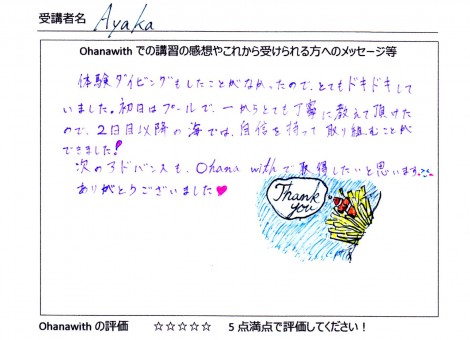 受講者名 Ayaka
Ohanawith での講習の感想やこれから受けられる方へのメッセージ等
体験ダイビングもしたことがなかったので、とてもドキドキして
いました。初日はプールで、一からとても丁寧に教えて頂けた
ので、2日目以降の海では、自信を持って取り組むことが
できました!
次のアドバンスも、Ohana withで取得したいと思います。
ありがとうございました♥
Thank
you
Ohanawith の評価 ☆☆☆☆☆ 5 点満点で評価してください！